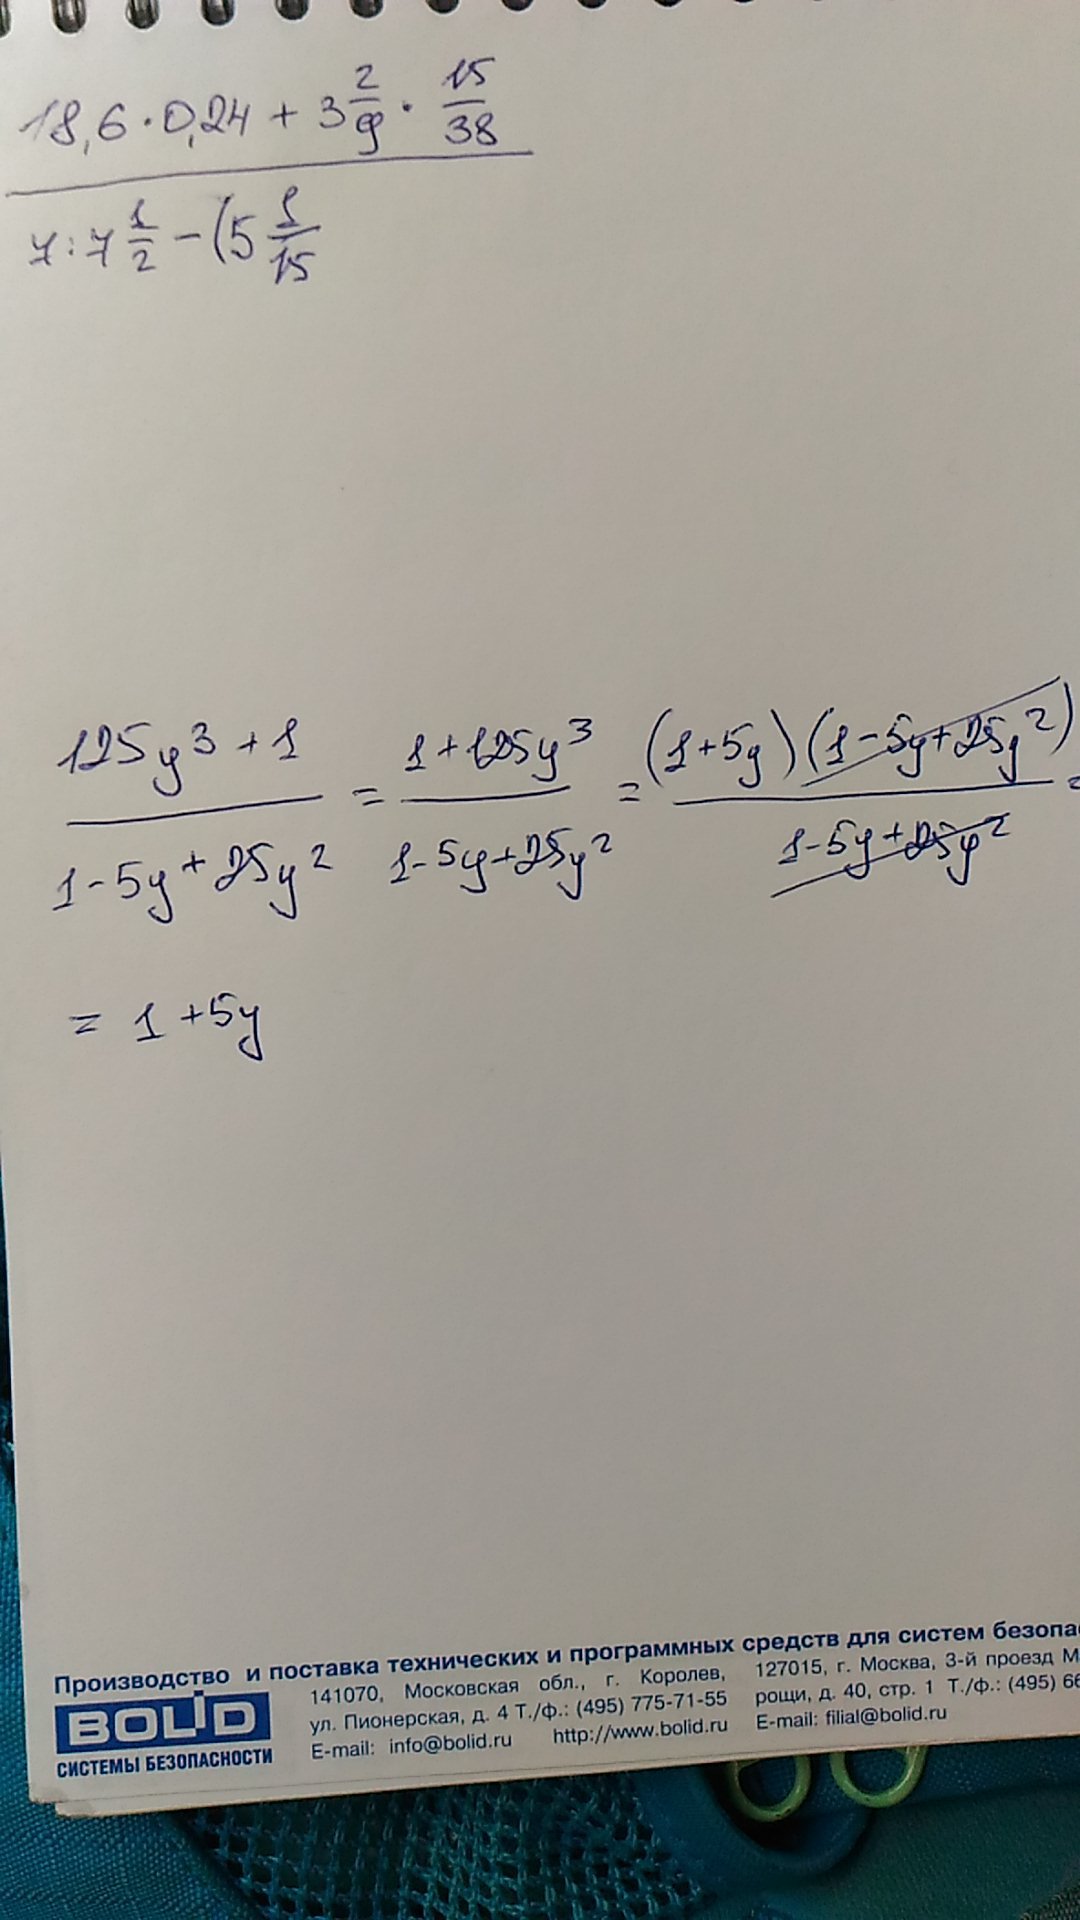 18,6·0,24 + 3 2/9 · 15/38
7:7 1/2 - (5 1/15
125y³ + 1 = 1+125y³ = (1+5y)(1-5y+25y²) =
1-5y+25y² 1-5y+25y² 1-5y+25y²
= 1+5y
Производство и поставка технических и программных средств для систем безопа
BOLID
СИСТЕМЫ БЕЗОПАСНОСТИ
141070, Московская обл., г. Королев,
ул. Пионерская, д. 4 Т./ф.: (495) 775-71-55
E-mail: info@bolid.ru http://www.bolid.ru
127015, г. Москва, 3-й проезд М
рощи, д. 40, стр. 1 Т./ф.: (495) 66
E-mail: filial@bolid.ru